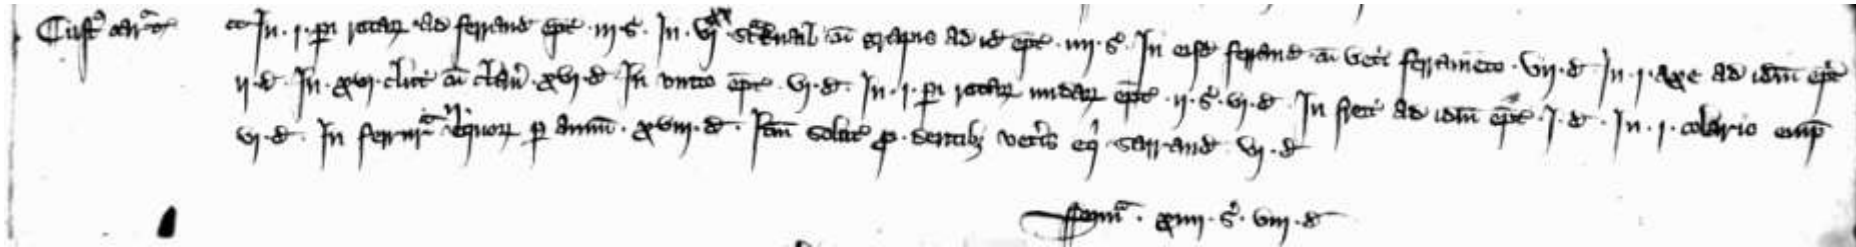 Cust' car' In .i. p̄i rotar' ad ferrand' empt' .iij. s'. In .vj xx. st'nail' cū grapis ad id' empt' .iiij. s'. In eisd' ferrand' cū vet'i ferramēto .vij. d'. In .i. axe ad idm̄ empt'
ij. d'. In .xvj. clut' cū clau' .xvj. d'. In uncto empt' .vj. d'. In .i. p̄i rotar' nudar' empt' .ij. s'. vj. d'. In frett' ad idm̄ empt' .j. d'. In .i. colario emp̄
vj. d'. In ferrur' .ij. equor' p annū .xviij. d'. Itm̄ solut' p dentib' vet'is eq' sarrand' .vj. d'
Summa .xiiij. s'. viij. d'